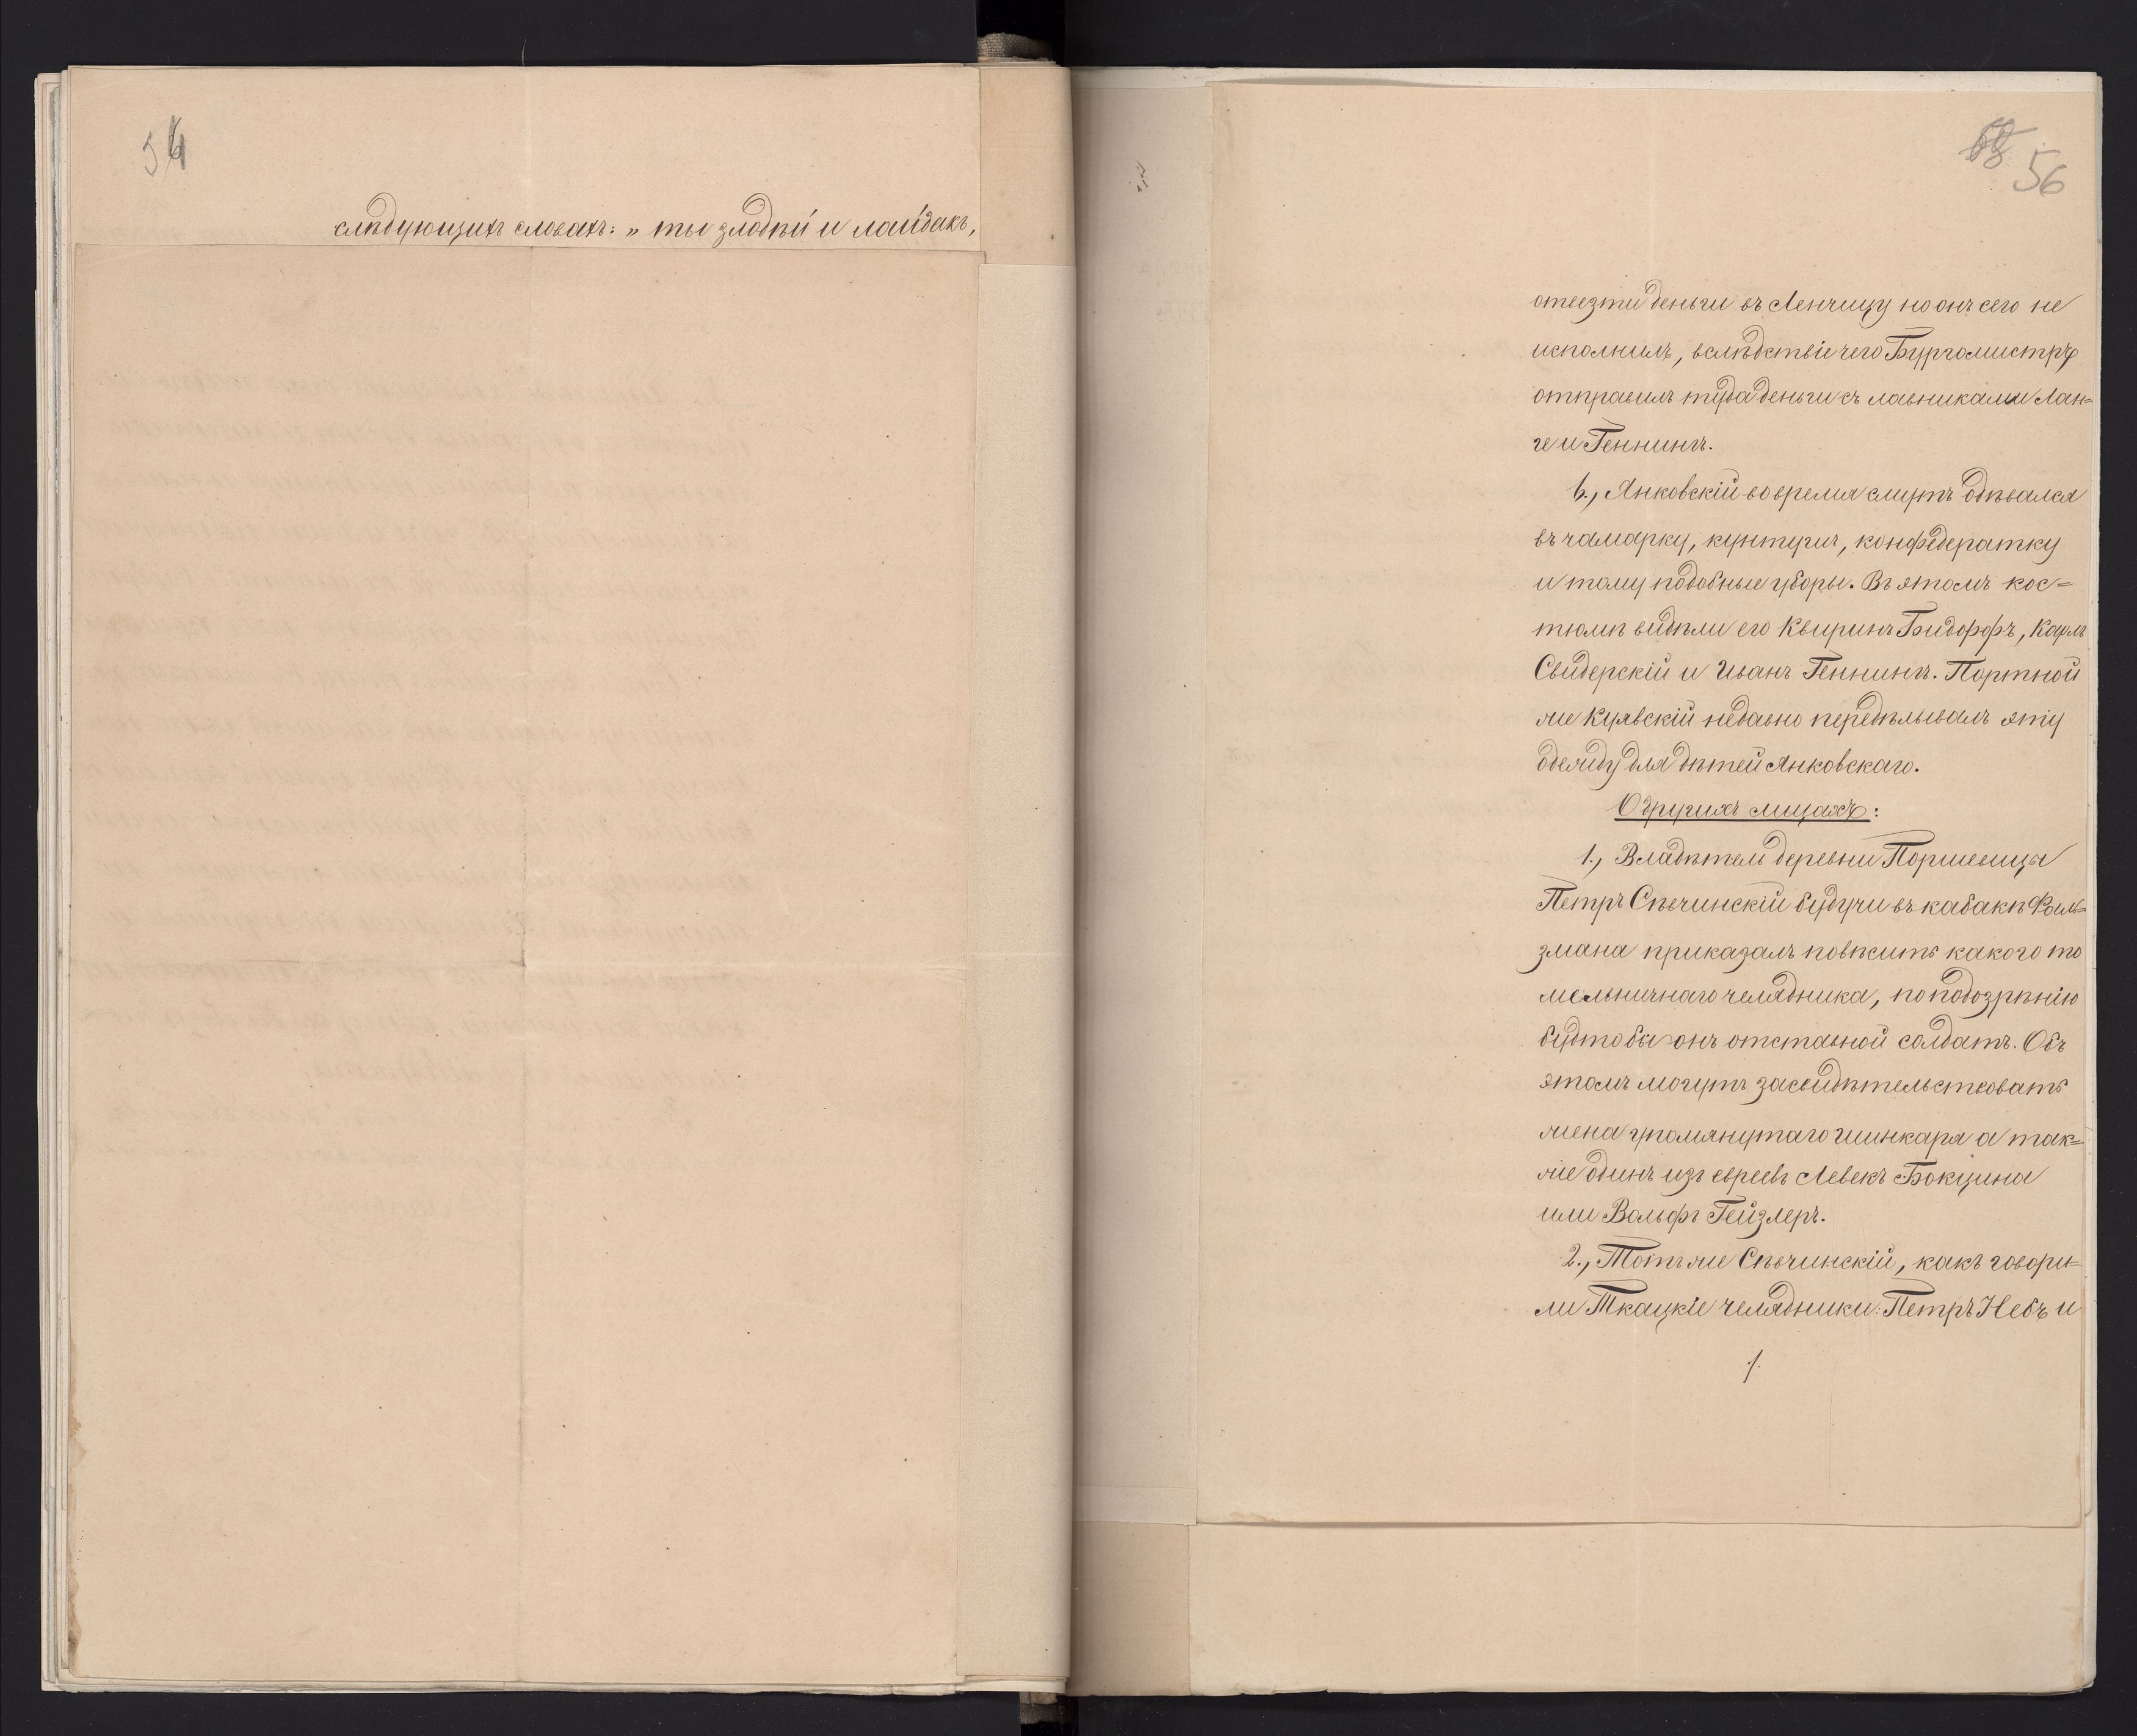 54
слѣдующихъ словахъ: „ ты злодѣй и лайдакъ,
56
отвезти деньги въ Ленчицу но онъ сего не
исполнилъ, вслѣдствіе чего Бургомистръ
отправилъ туда деньги съ лавниками Лан=
ге и Геннингъ.
6., Янковскій во время смутъ одѣвался
въ чамарку, кунтушъ, конфедератку
и тому подобные уборы. Въ этомъ кос=
тюмѣ видѣли его Квиринъ Бидорфъ, Карлъ
Свидерскій и Иванъ Геннингъ. Портной
же Куявскій недавно передѣлывалъ эту
одежду для дѣтей Янковскаго.
О другихъ лицахъ:
1., Владѣтель деревни Поршевицы
Петръ Спѣчинскій будучи въ кабакѣ Фаль=
змана приказалъ повѣсить какого то
мельничнаго челядника, по подозрѣнію
будто бы онъ отставной солдатъ. Объ
этомъ могутъ засвидѣтельствовать
жена упомянутаго шинкаря а так=
же одинъ изъ евреевъ Левекъ Бокцина
или Вольфъ Гейзлеръ.
2., Тотъ же Спѣчинскій, какъ говори=
ли Ткацкіе челядники: Петръ Небъ и
./.